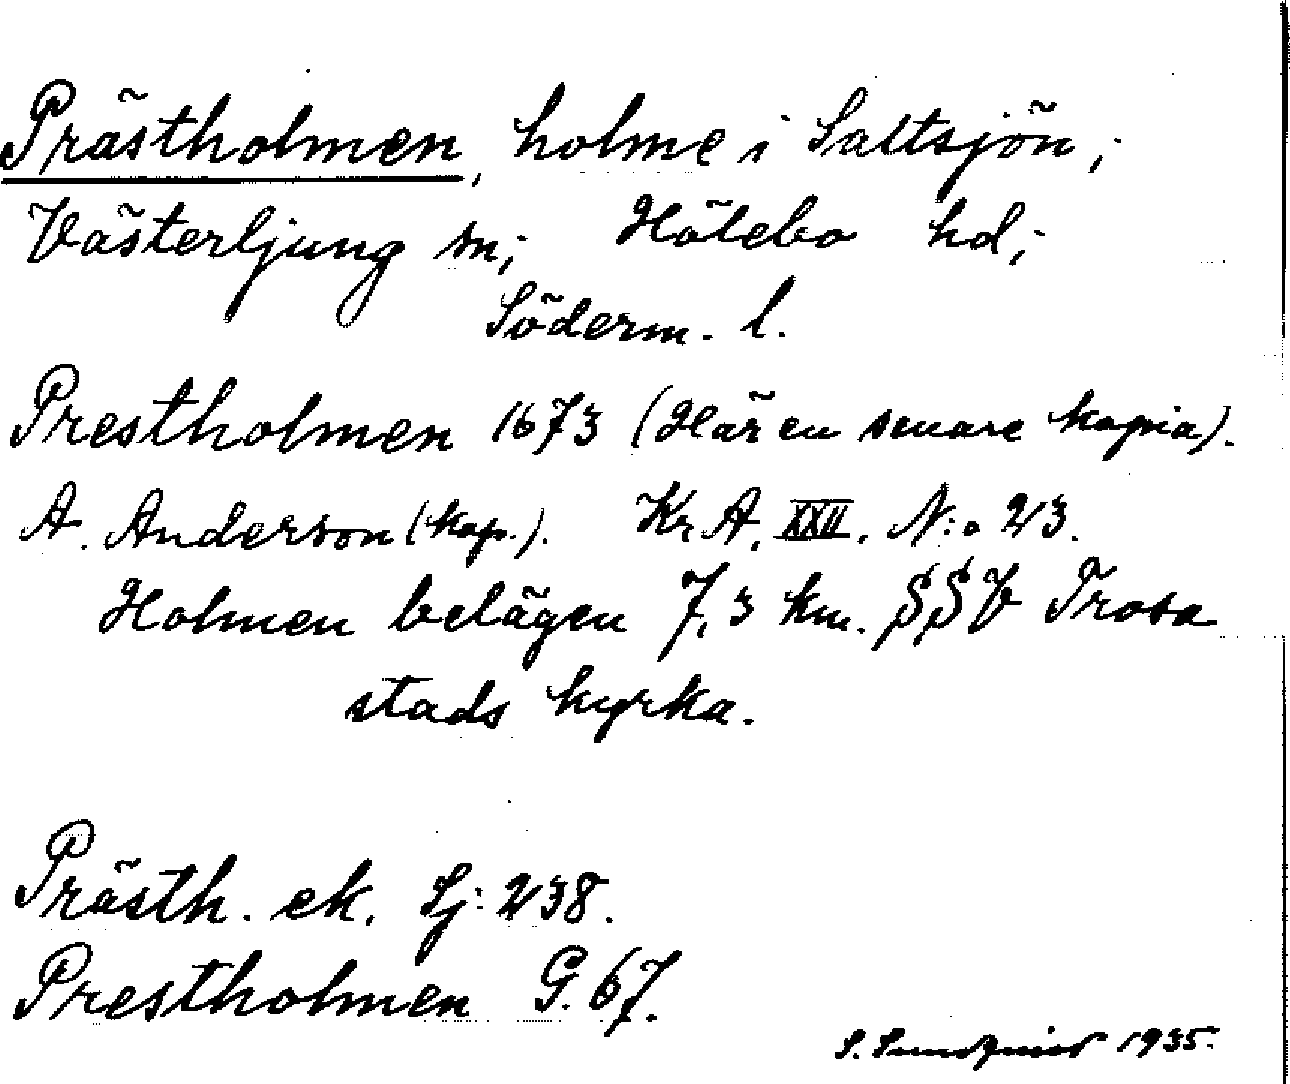 Prästholmen, holme i Saltsjön,
Västerljung sn; Hölebo hd;
Söderm. l.
Prestholmen 1673 (Här en senare kopia).
A. Anderson (kop.). Kr A. XXII. N:o 23.
Holmen belägen 7,3 km. SSV Trosa
stads kyrka.
Prästh. ek. Sj: 238.
Prestholmen G. 67.
S. Sundquist 1935.